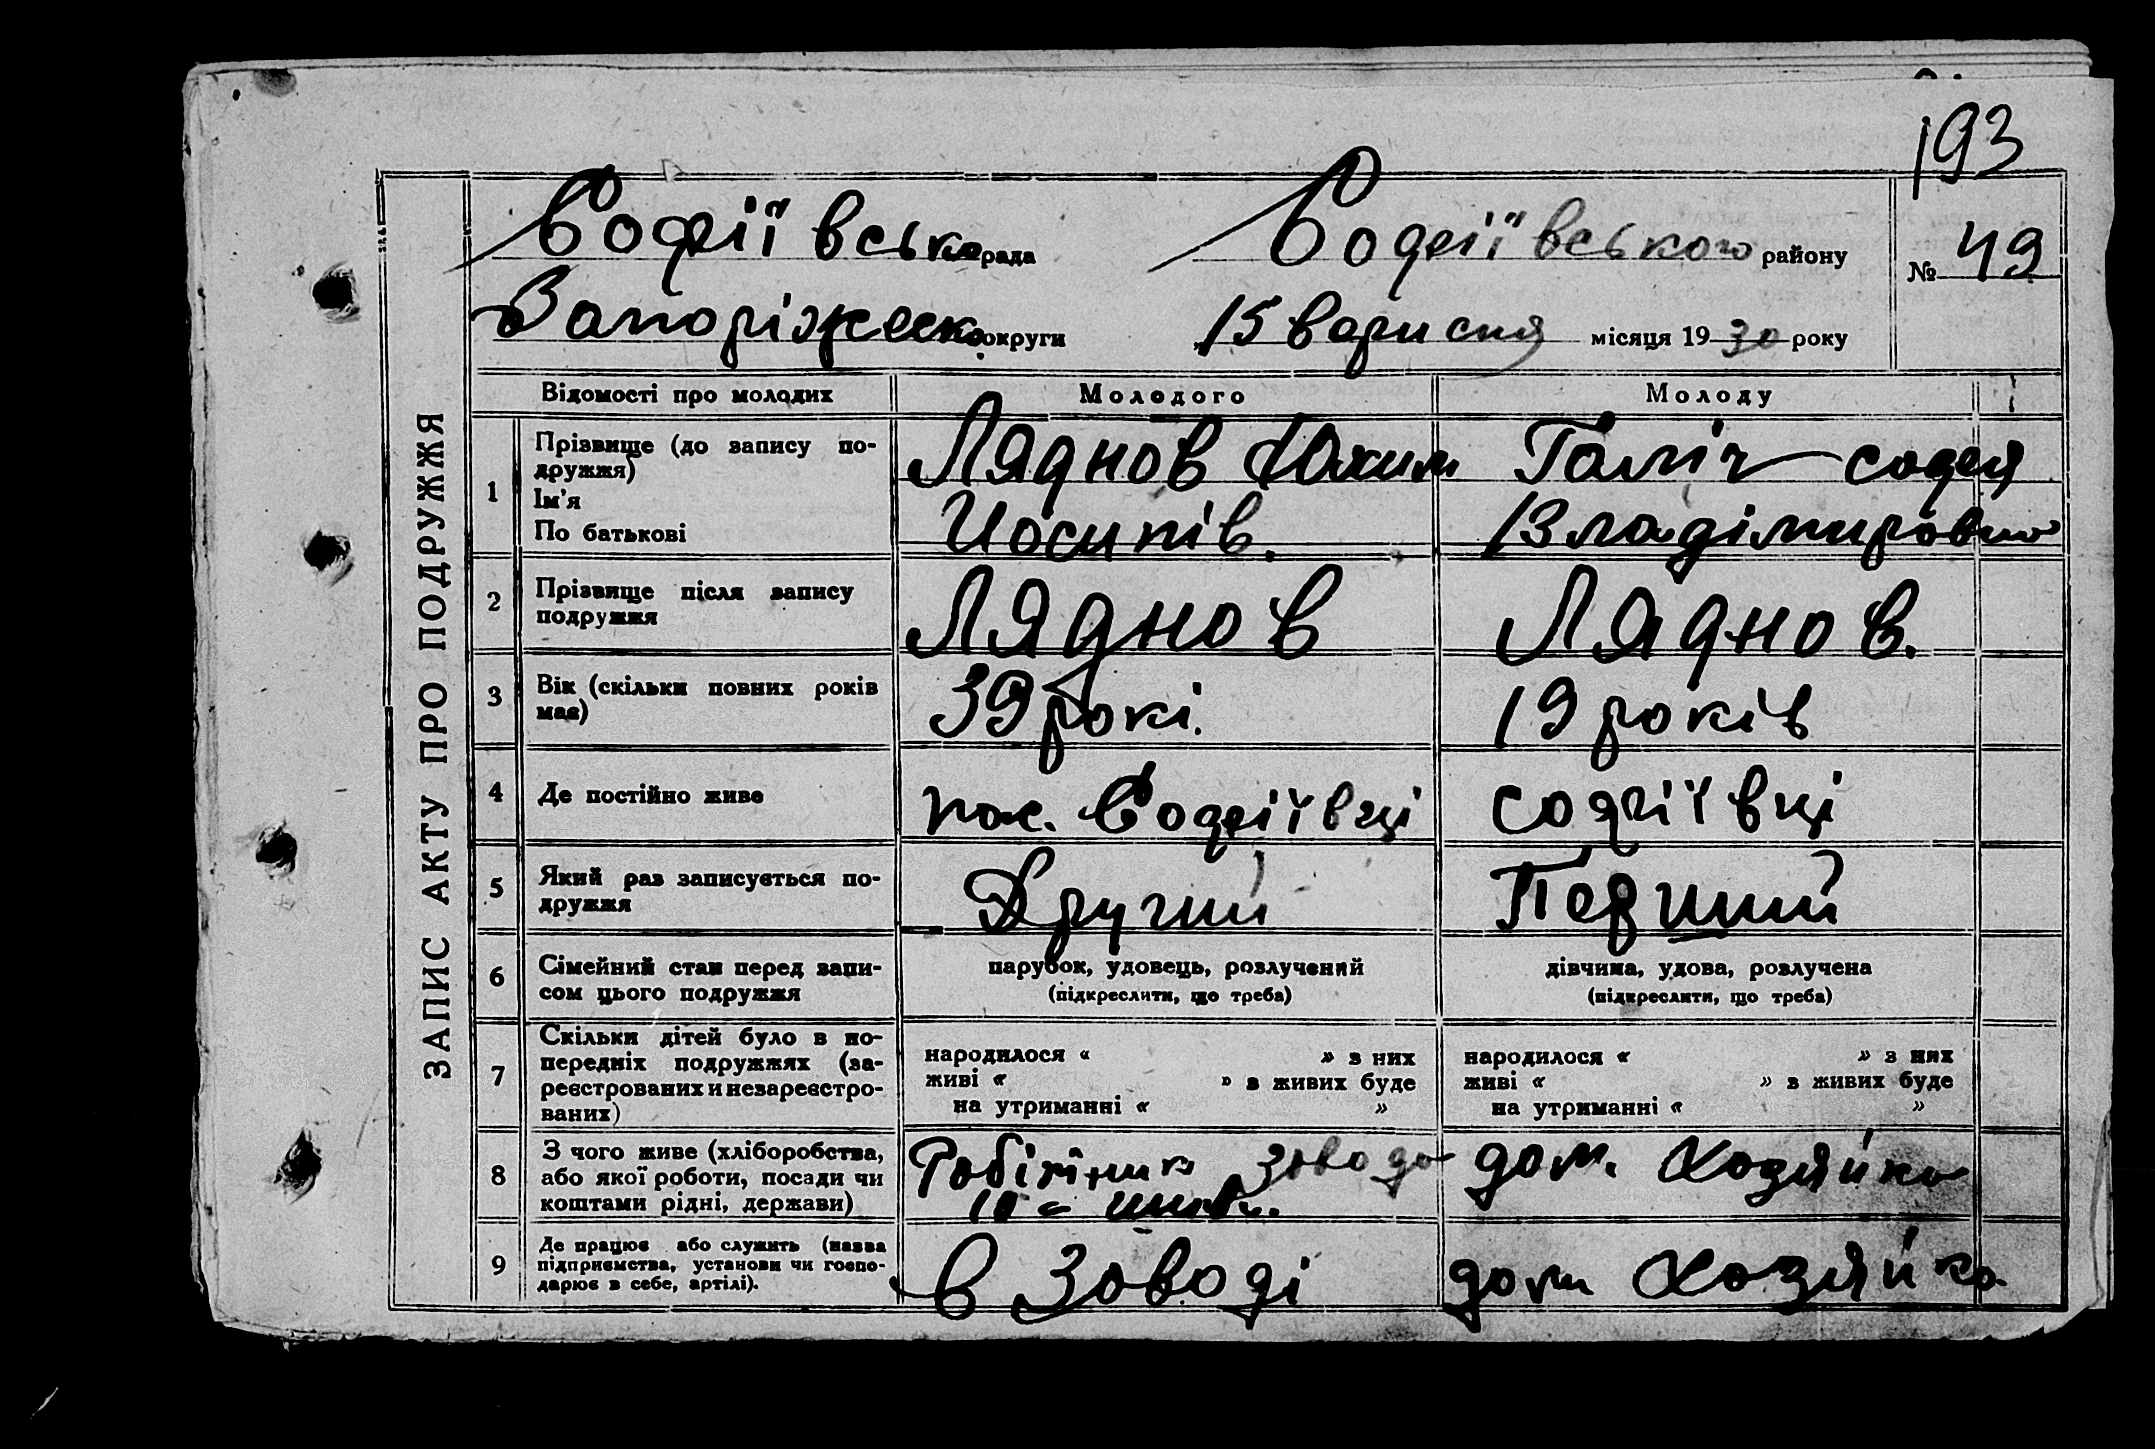 193
Софіївська рада Софіївського району № 49
Запоріжськ. округи 15 вересня місяця 1930 року
ЗАПИС АКТУ ПРО ПОДРУЖЖЯ
Відомості про молодих Молодого Молоду
1 Прізвище (до запису по-
дружжя)
Ім'я
По батькові
Ляднов Юхим
Йосипів.
Галіч Софія
Владіміровна
2 Прізвище після запису
подружжя
Ляднов
Ляднов.
3 Вік (скільки повних років
має)
39 рокі.
19 років
4 Де постійно живе
пос. Софіївці
Софіївці
5 Який раз записується по-
дружжя
Другий
Перший
6 Сімейний стан перед запи-
сом цього подружжя
парубок, удовець, розлучений
(підкреслити, що треба)
дівчина, удова, розлучена
(підкреслити, що треба)
7 Скільки дітей було в по-
передніх подружжях (за-
реєстрованих и незареєстро-
ваних)
народилося « » з них
живі « » в живих буде
на утриманні « »
народилося « » з них
живі « » в живих буде
на утриманні « »
8 З чого живе (хліборобства,
або якої роботи, посади чи
коштами рідні, держави)
Робітник заводу
дом. хозяйка
9 Де працює або служить (назва
підприємства, установи чи госпо-
дарює в себе, артілі).
в заводі
дом хозяйка